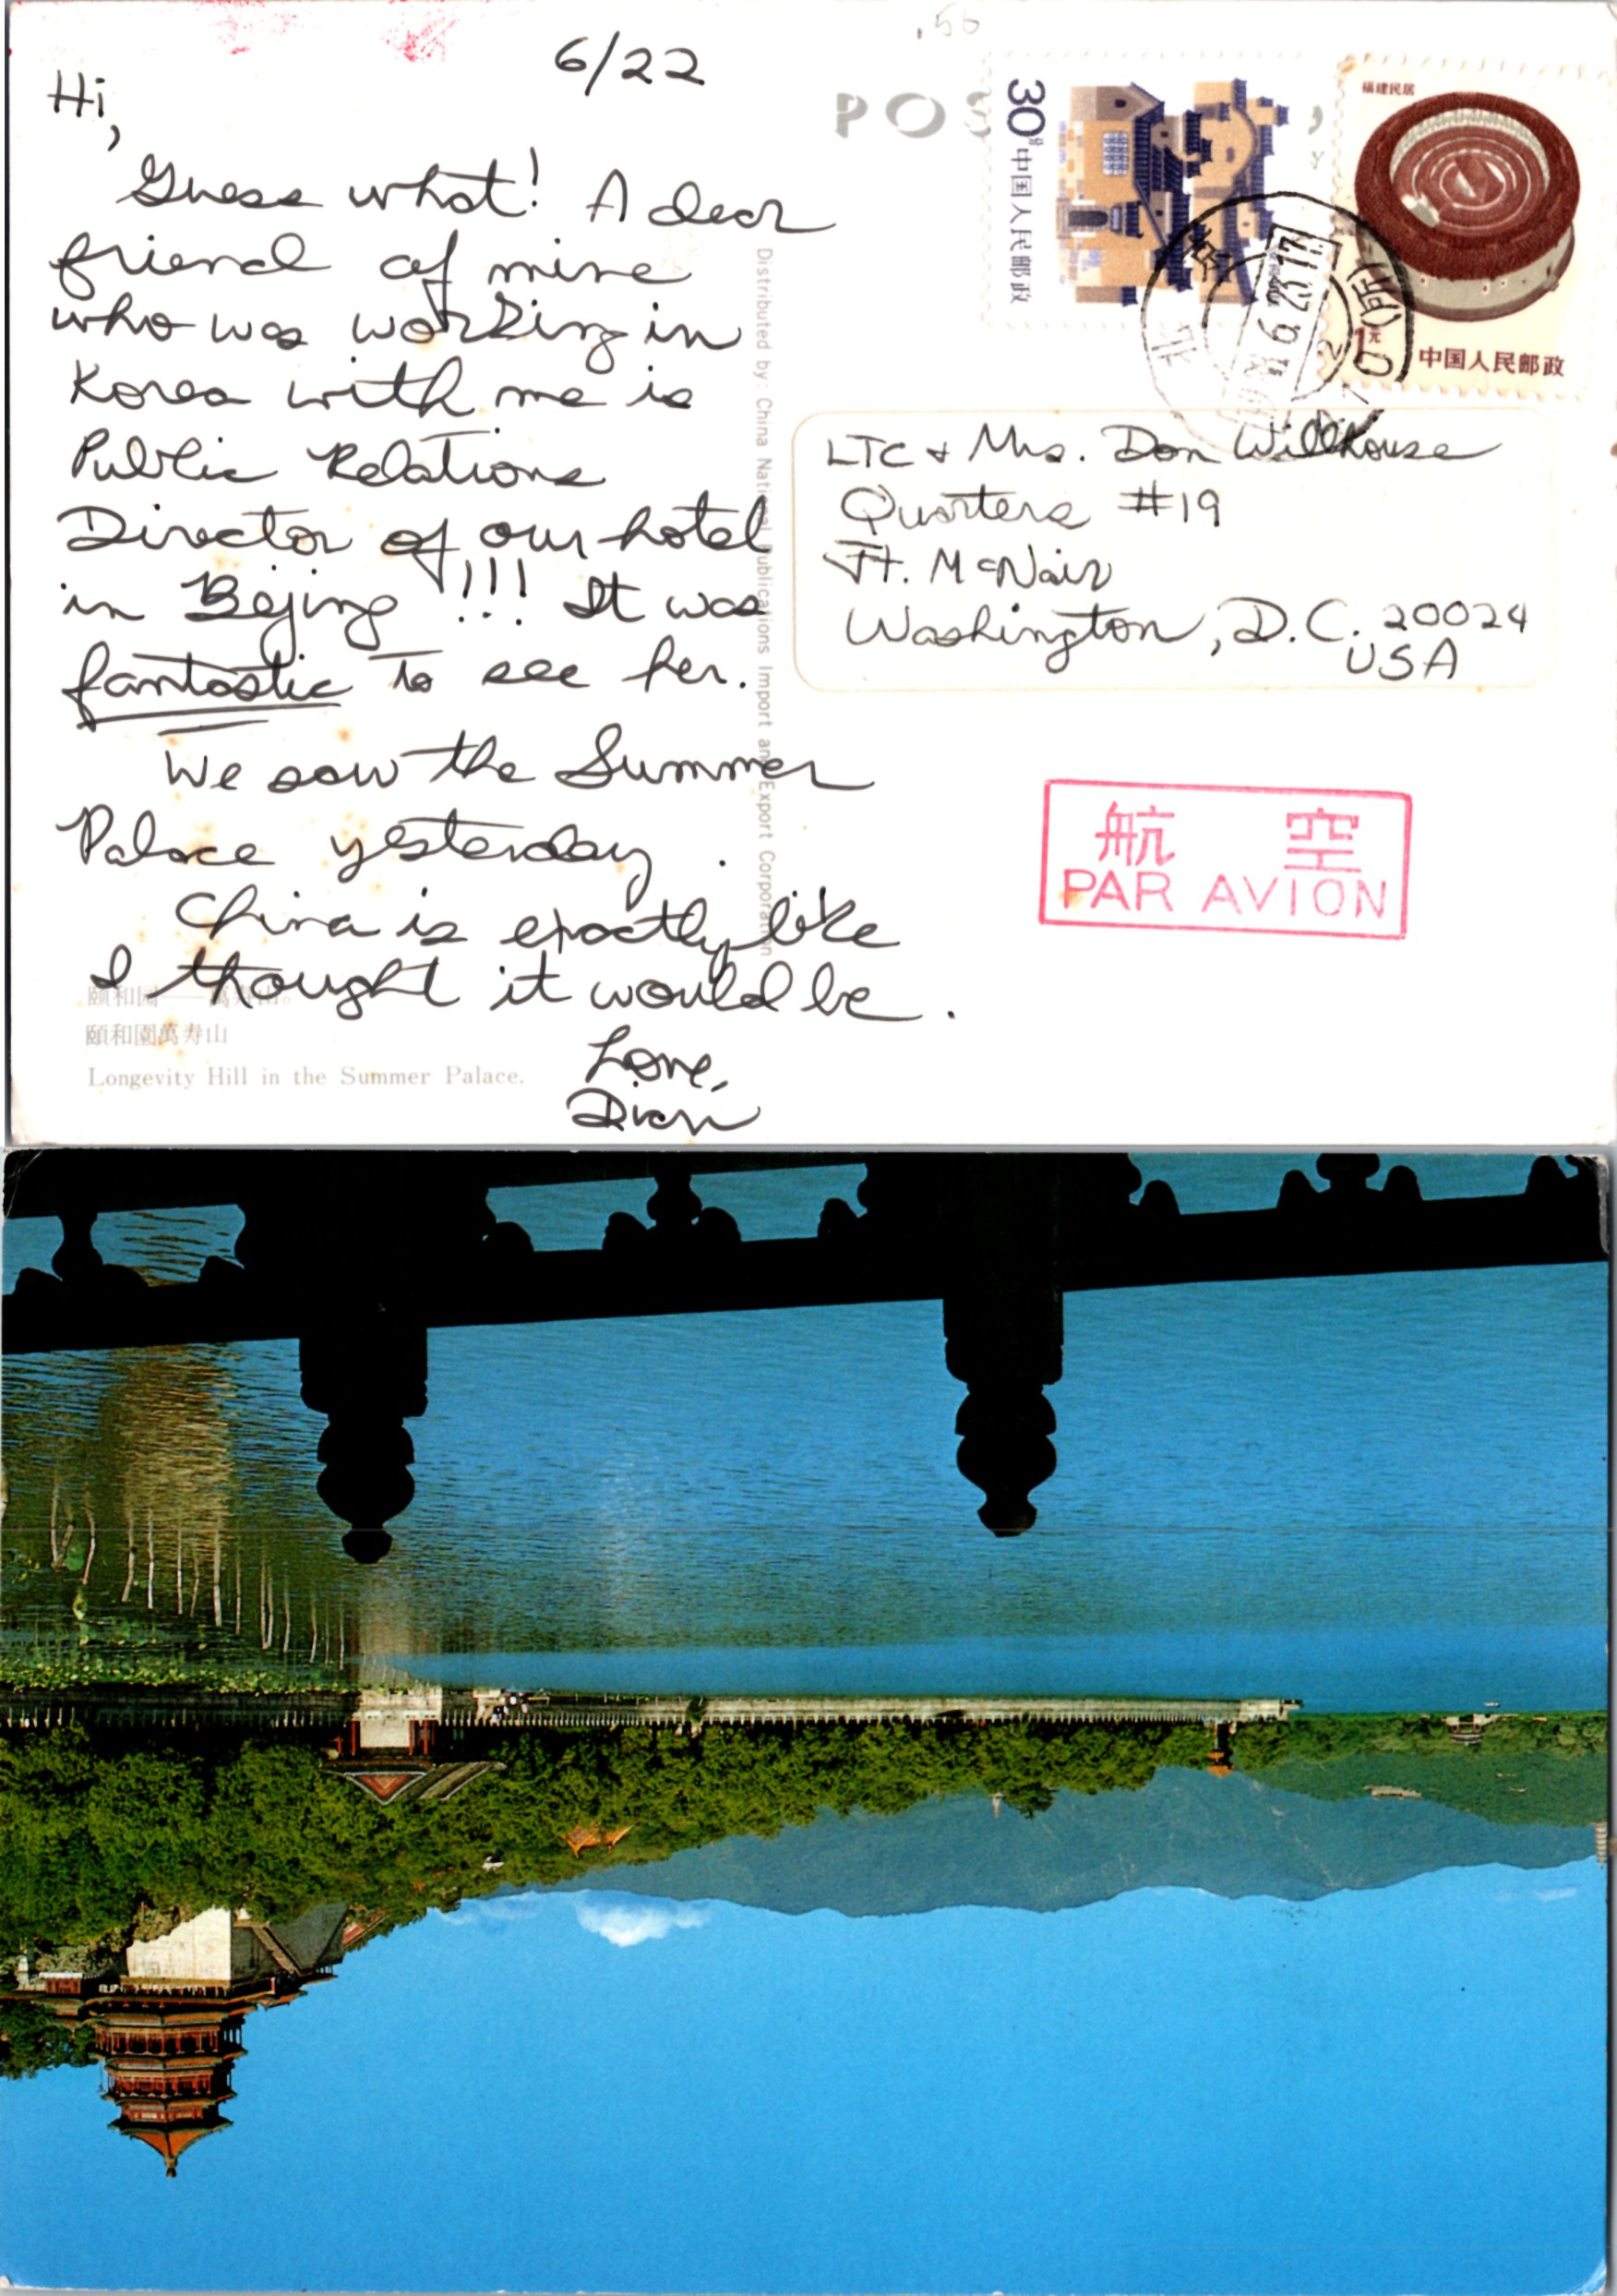 .50
6/22
Hi,
Guess what! A dear
friend of mine
who was working in
Korea with me is
Public Relations
Director of our hotel
in Bejing !!! It was
fantastic to see her.
We saw the Summer
Palace yesterday.
China is exactly like
I thought it would be.
Love,
Dian
颐和园——萬寿山。
頤和園萬寿山
Longevity Hill in the Summer Palace.
Distributed by: China National Publications Import and Export Corporation
POS
30分
中国人民邮政
福建民居
1元
中国人民邮政
北京
LTC & Mrs. Don Willhouse
Quarters #19
Ft. McNair
Washington, D.C. 20024
USA
航空
PAR AVION